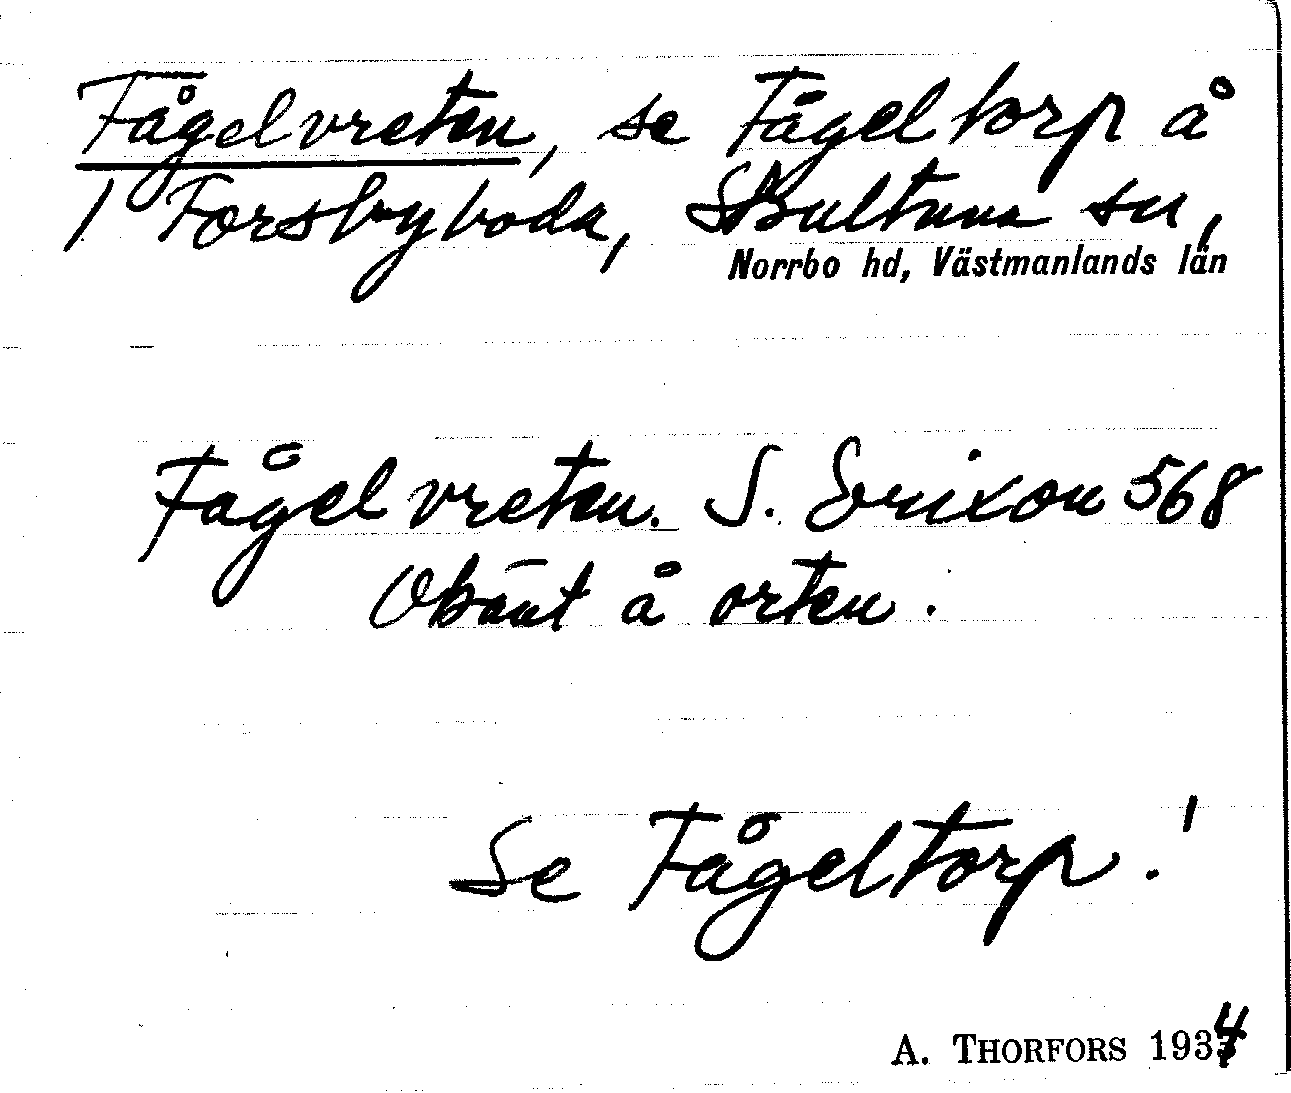 Fågelvreten, se Fågeltorp å
1 Forsbyboda, Skultuna sn,
Norrbo hd, Västmanlands län
Fågelvreten. S. Erixon 568
Okänt å orten.
Se Fågeltorp!
A. THORFORS 1934